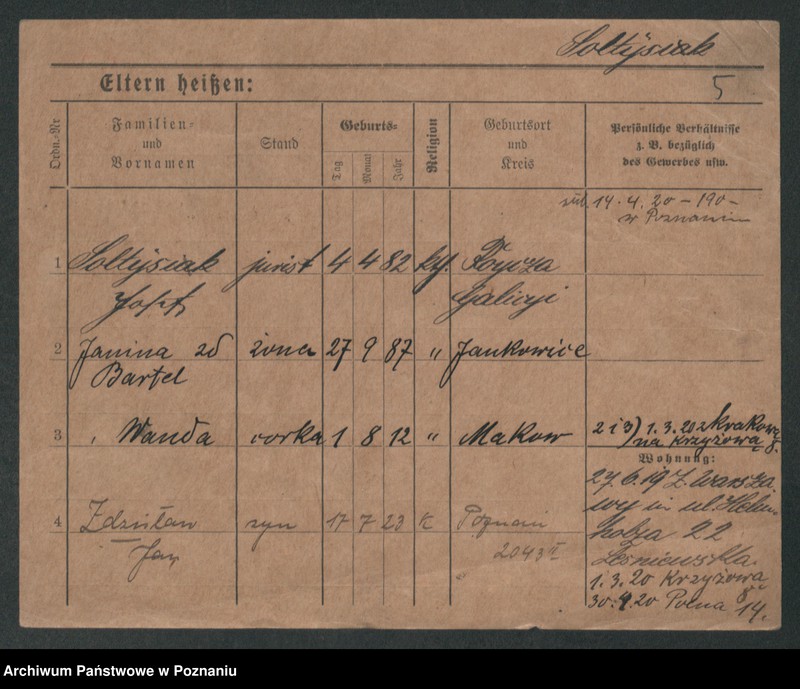 Sołtysiak
Eltern heißen:
5
Ordn.-Nr
Familien-
und
Vornamen
Stand
Geburts-
Tag
Monat
Jahr
Religion
Geburtsort
und
Kreis
Persönliche Verhältnisse
z. B. bezüglich
des Gewerbes usw.
14.4.20 – 190 –
w Poznaniu
1 Sołtysiak jurist 4 4 82 kat.
Józef Galicyi
2 Janina zd żona 27 9 87 " Jankowice
Bartel
3 " Wanda córka 1 8 12 " Makow
2 i 3) 1.3.20 z Krakowa
na Krzyżową 8.
Wohnung:
27.6.19 z Warsza
wy ul. Helm
holza 22
Leśniewska.
4 Zdzisław syn 17 7 23 K Poznań
Jan 2043 II
"
1.3.20 Krzyżowa 8
30.4.20 Polna 14.